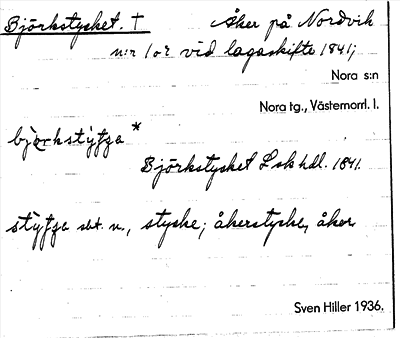 Björkstycket. † Åker på Nordvik
n:r 1 o 2 vid lagaskifte 1841;
Nora s:n
Nora tg., Västernorrl. l.
Björkstycket Lskhdl. 1841.
sbt. n., stycke; åkerstycke, åker
Sven Hiller 1936.